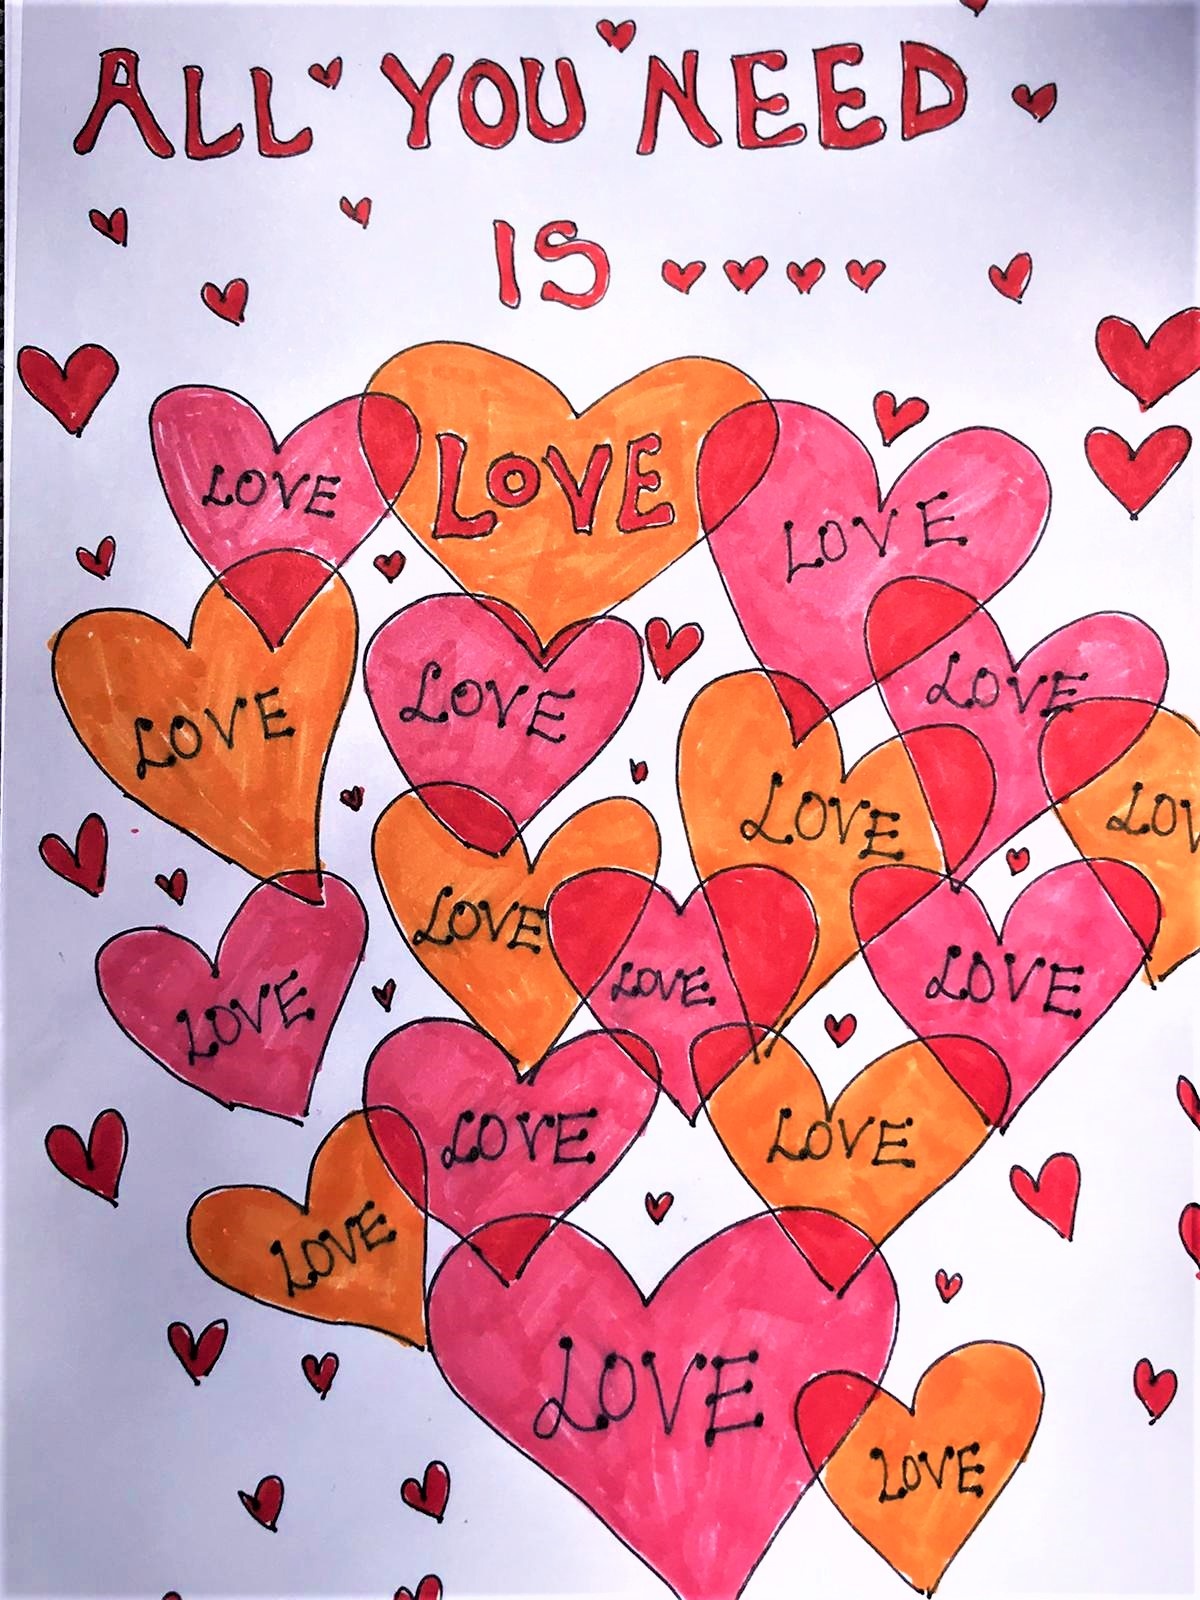 ALL YOU NEED
IS
LOVE
LOVE
LOVE
LOVE
LOVE
LOVE
LOVE
LOV
LOVE
LOVE
LOVE
LOVE
LOVE
LOVE
LOVE
LOVE
LOVE